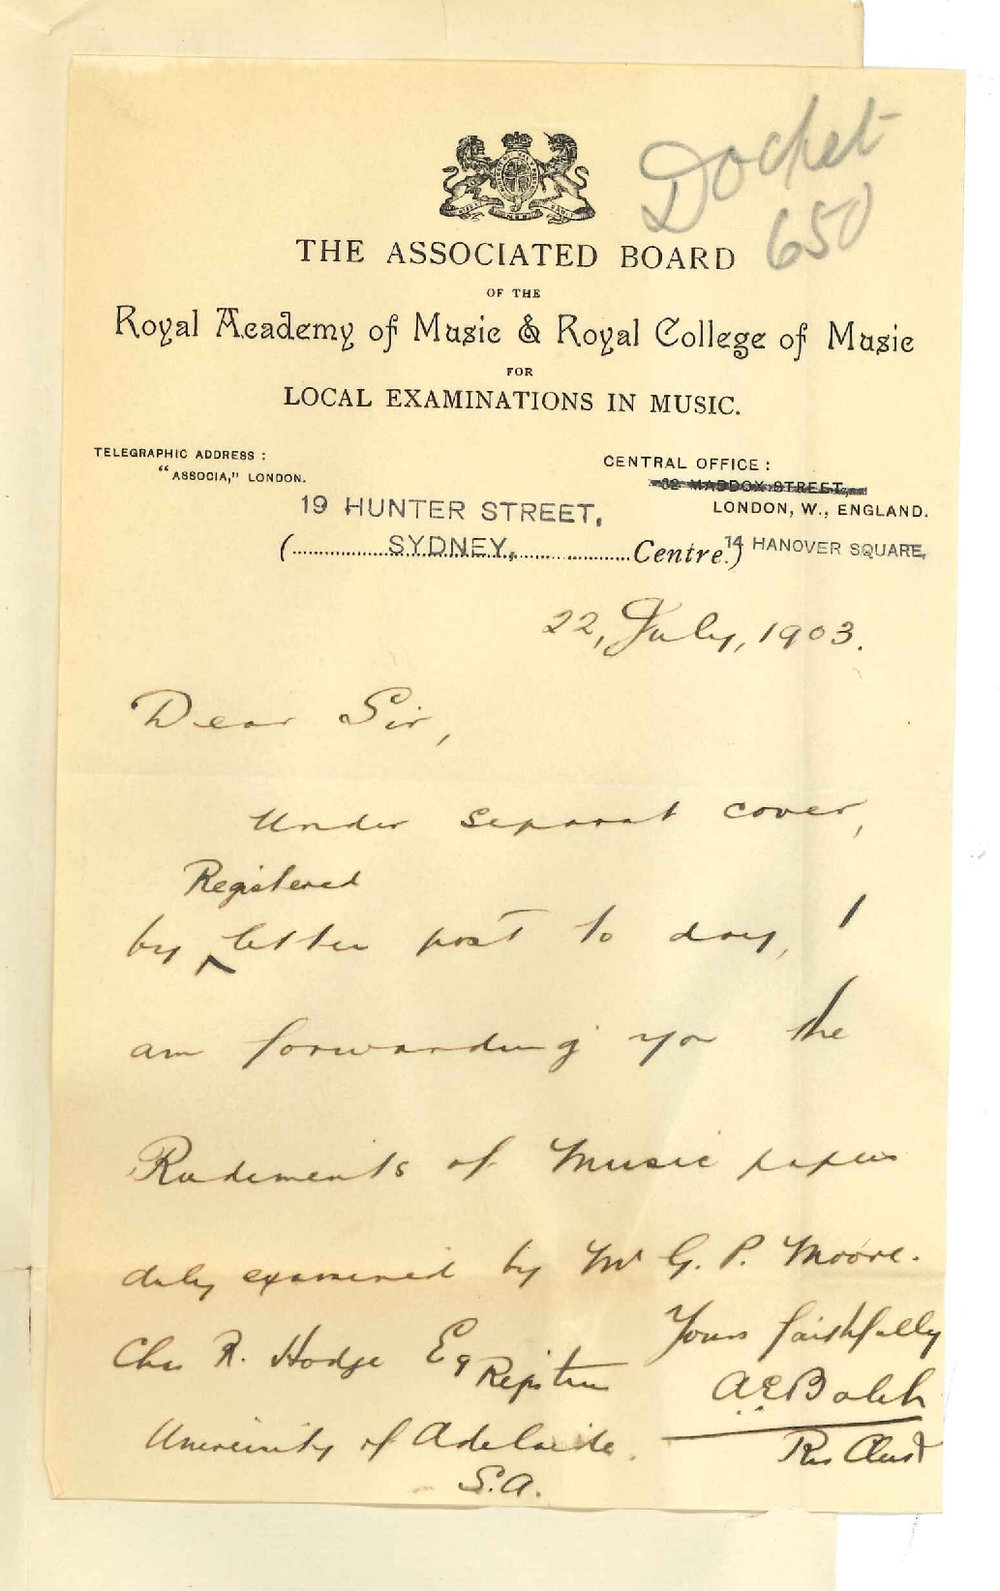 Docket
650
THE ASSOCIATED BOARD
OF THE
Royal Academy of Music & Royal College of Music
FOR
LOCAL EXAMINATIONS IN MUSIC.
TELEGRAPHIC ADDRESS:
"ASSOCIA," LONDON.
CENTRAL OFFICE:
32 MADDOX STREET,
LONDON, W., ENGLAND.
14 HANOVER SQUARE,
19 HUNTER STREET,
(SYDNEY, Centre.)
22, July, 1903.
Dear Sir,
Under separat cover,
Registered
by letter post to day, I
am forwarding you the
Rudiments of Music papers
duly examined by Mr G. P. Moore.
Yours faithfully
A E Balch
Res
Chas R. Hodge Esq Registrar
University of Adelaide.
S.A.